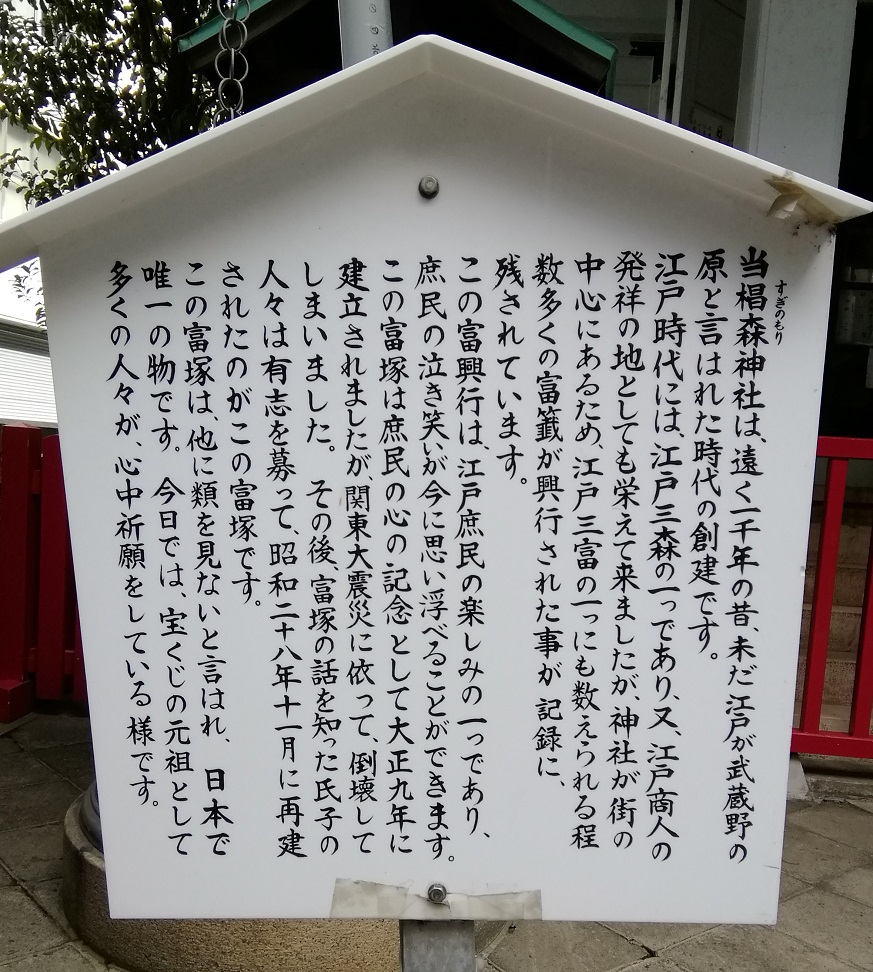 当椙森神社は、遠く一千年の昔、未だ江戸が武蔵野の
すぎのもり
原と言はれた時代の創建です。
江戸時代には、江戸三森の一っであり、又、江戸商人の
発祥の地としても栄えて来ましたが、神社が街の
中心にあるため、江戸三富の一っにも数えられる程
数多くの富籤が興行された事が記録に、
残されています。
この富興行は、江戸庶民の楽しみの一っであり、
庶民の泣き笑いが今に思い浮べることができます。
この富塚は庶民の心の記念として大正九年に
建立されましたが、関東大震災に依って、倒壊して
しまいました。その後、富塚の話を知った氏子の
人々は有志を募って、昭和二十八年十一月に再建
されたのがこの富塚です。
この富塚は、他に類を見ないと言はれ、日本で
唯一の物です。今日では、宝くじの元祖として
多くの人々が、心中祈願をしている様です。